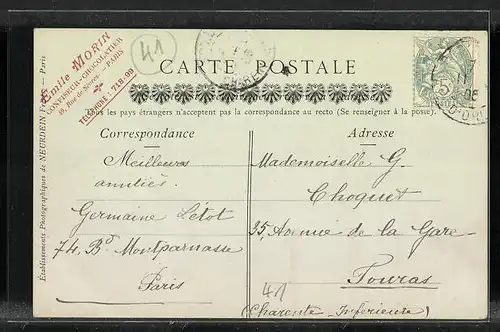 Emile MORIN
CONFISEUR-CHOCOLATIER
48, Rue de Sèvres - PARIS
TÉLÉPHONE : 718-09
41
CARTE POSTALE
Tous les pays étrangers n'acceptent pas la correspondance au recto (Se renseigner à la poste).
Correspondance
Meilleures
amitiés.
Germaine Létot
74, Bd Montparnasse
Paris
Adresse
Mademoiselle G.
Choquet
25, Avenue de la Gare
Fouras
(Charente-Inférieure)
41
5
Établissements Photographiques de NEURDEIN Frères — Paris